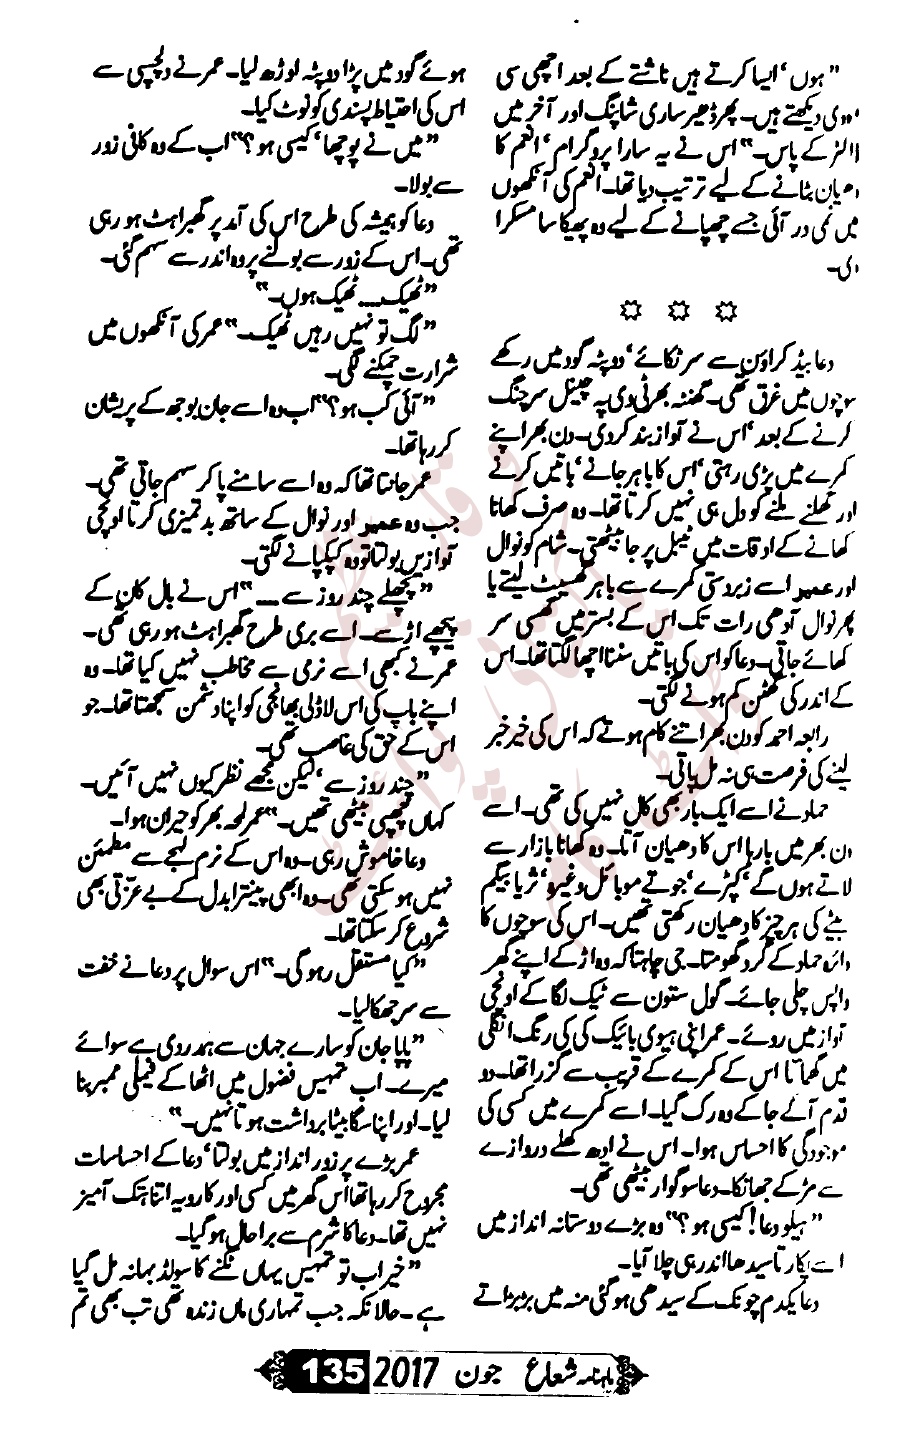 ”ہوں‘ ایسا کرتے ہیں ناشتے کے بعد اچھی سی
دیکھتے ہیں۔ پھر ڈھیر ساری شاپنگ اور آخر میں
کے پاس۔“ اس نے یہ سارا پروگرام‘ انعم کا
دھیان بٹانے کے لیے ترتیب دیا تھا۔ انعم کی آنکھوں
میں نمی در آئی جسے چھپانے کے لیے وہ پھیکا سا مسکرا
دی۔
دعا بیڈ کراؤن سے سر ٹکائے‘ دوپٹہ گود میں رکھے
سوچوں میں غرق تھی۔ گھنٹہ بھر ٹی وی پہ چینل سرچنگ
کرنے کے بعد‘ اس نے آواز بند کر دی۔ دن بھر اپنے
کمرے میں پڑی رہتی‘ اس کا باہر جانے‘ باتیں کرنے
اور گھلنے ملنے کو دل ہی نہیں کرتا تھا۔ وہ صرف کھانا
کھانے کے اوقات میں ٹیبل پر جا بیٹھتی۔ شام کو نوال
اور عمیر اسے زبردستی کمرے سے باہر گھسیٹ لیتے یا
پھر نوال آدھی رات تک اس کے بستر میں گھسی سر
کھائے جاتی۔ دعا کو اس کی باتیں سننا اچھا لگتا تھا۔ اس
کے اندر کی گھٹن کم ہونے لگتی۔
رابعہ احمد کو دن بھر اتنے کام ہوتے کہ اس کی خیر خبر
لینے کی فرصت ہی نہ مل پاتی۔
حماد نے اسے ایک بار بھی کال نہیں کی تھی۔ اسے
دن بھر میں بارہا اس کا دھیان آتا۔ وہ کھانا بازار سے
لاتے ہوں گے‘ کپڑے‘ جوتے موبائل وغیرہ‘ ثریا بیگم
بیٹے کی ہر چیز کا دھیان رکھتی تھیں۔ اس کی سوچوں کا
دائرہ حماد کے گرد گھومتا۔ جی چاہتا کہ وہ اڑ کے اپنے گھر
واپس چلی جائے۔ گول ستون سے ٹیک لگا کے اونچی
آواز میں روئے۔ عمر اپنی ہیوی بائیک کی کی رنگ انگلی
میں گھماتا اس کے کمرے کے قریب سے گزر رہا تھا۔ دو
قدم آگے جا کے وہ رک گیا۔ اسے کمرے میں کسی کی
موجودگی کا احساس ہوا۔ اس نے ادھ کھلے دروازے
سے مڑ کے جھانکا۔ دعا سوگوار بیٹھی تھی۔
”ہیلو دعا! کیسی ہو؟“ وہ بڑے دوستانہ انداز میں
اسے پکارتا سیدھا اندر ہی چلا آیا۔
دعا یکدم چونک کے سیدھی ہو گئی منہ میں بڑبڑاتے
ہوئے گود میں پڑا دوپٹہ اوڑھ لیا۔ عمر نے دلچسپی سے
اس کی احتیاط پسندی کو نوٹ کیا۔
”میں نے پوچھا‘ کیسی ہو؟“ اب کے وہ کافی زور
سے بولا۔
دعا کو ہمیشہ کی طرح اس کی آمد پر گھبراہٹ ہو رہی
تھی۔ اس کے زور سے بولنے پر وہ اندر سے سہم گئی۔
”ٹھیک۔۔۔ ٹھیک ہوں۔“
”لگ تو نہیں رہیں ٹھیک۔“ عمر کی آنکھوں میں
شرارت چمکنے لگی۔
”آئی کب ہو؟“ اب وہ اسے جان بوجھ کے پریشان
کر رہا تھا۔
عمر جانتا تھا کہ وہ اسے سامنے پا کر سہم جاتی تھی۔
جب وہ عمیر اور نوال کے ساتھ بدتمیزی کرتا اونچی
آواز میں بولتا تو وہ کپکپانے لگتی۔
”پچھلے چند روز سے۔۔۔“ اس نے بال کان کے
پیچھے اڑسے۔ اسے بری طرح گھبراہٹ ہو رہی تھی۔
عمر نے کبھی اسے نرمی سے مخاطب نہیں کیا تھا۔ وہ
اپنے باپ کی اس لاڈلی بھانجی کو اپنا دشمن سمجھتا تھا۔ جو
اس کے حق کی غاصب تھی۔
”چند روز سے‘ لیکن مجھے نظر کیوں نہیں آئیں۔
کہاں چھپی بیٹھی تھیں۔“ عمر لمحہ بھر کو حیران ہوا۔
دعا خاموش رہی۔ وہ اس کے نرم لہجے سے مطمئن
نہیں ہو سکتی تھی۔ وہ ابھی پینترا بدل کے بے عزتی بھی
شروع کر سکتا تھا۔
”کیا مستقل رہو گی۔“ اس سوال پر دعا نے خفت
سے سر جھکا لیا۔
”پاپا جان کو سارے جہان سے ہمدردی ہے سوائے
میرے۔ اب تمہیں فضول میں اٹھا کے فیملی ممبر بنا
لیا۔ اور اپنا سگا بیٹا برداشت ہوتا نہیں۔“
عمر بڑے پر زور انداز میں بولتا‘ دعا کے احساسات
مجروح کر رہا تھا اس گھر میں کسی اور کا رویہ اتنا ہتک آمیز
نہیں تھا۔ دعا کا شرم سے برا حال ہو گیا۔
”خیر اب تو تمہیں یہاں ٹکنے کا سولڈ بہانہ مل گیا
ہے۔ حالانکہ جب تمہاری ماں زندہ تھی تب بھی تم
ماہنامہ شعاع جون 2017 135